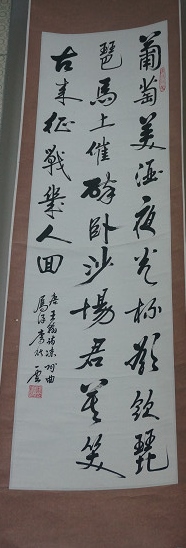 葡萄美酒夜光杯欲飲琵
琶馬上催醉卧沙場君莫笑
古来征戰幾人回
唐王翰詩凉州曲